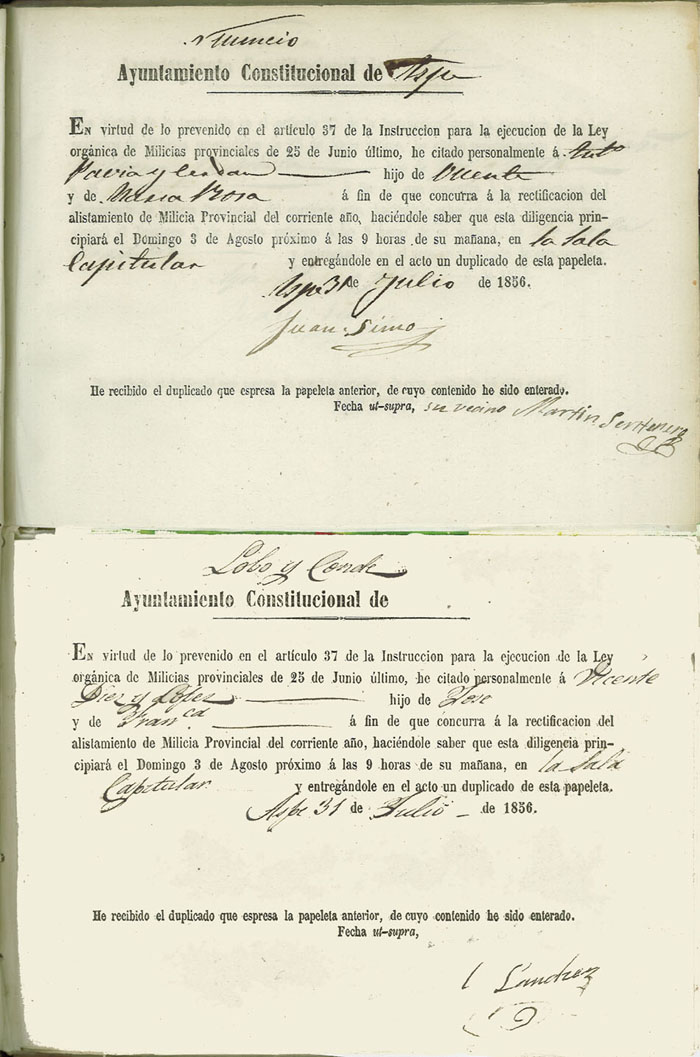 Nuncio
Ayuntamiento Constitucional de Aspe
EN virtud de lo prevenido en el artículo 37 de la Instruccion para la ejecucion de la Ley
orgánica de Milicias provinciales de 25 de Junio último, he citado personalmente á Antº
Pavia y hijo de Vicente
y de Maria Rosa á fin de que concurra á la rectificacion del
alistamiento de Milicia Provincial del corriente año, haciéndole saber que esta diligencia prin-
cipiará el Domingo 3 de Agosto próximo á las 9 horas de su mañana, en la Sala
Capitular y entregándole en el acto un duplicado de esta papeleta.
Aspe 31 de Julio de 1856.
Juan Simo
He recibido el duplicado que espresa la papeleta anterior, de cuyo contenido he sido enterado.
Fecha ut-supra, su vecino Martin
Lobo y Conde
Ayuntamiento Constitucional de
EN virtud de lo prevenido en el artículo 37 de la Instruccion para la ejecucion de la Ley
orgánica de Milicias provinciales de 25 de Junio último, he citado personalmente á Vicente
Diez y Lopez hijo de Jose
y de Franca á fin de que concurra á la rectificacion del
alistamiento de Milicia Provincial del corriente año, haciéndole saber que esta diligencia prin-
cipiará el Domingo 3 de Agosto próximo á las 9 horas de su mañana, en la Sala
Capitular y entregándole en el acto un duplicado de esta papeleta.
Aspe 31 de Julio de 1856.
He recibido el duplicado que espresa la papeleta anterior, de cuyo contenido he sido enterado.
Fecha ut-supra,
Sanchez